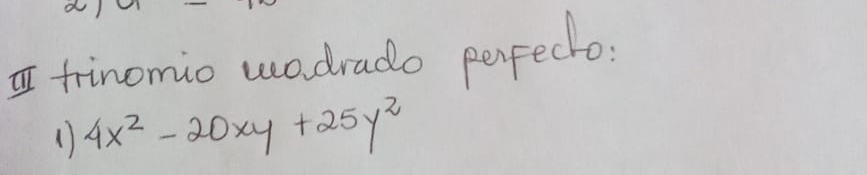 III trinomio cuadrado perfecto:
1) 4x² - 20xy + 25y²